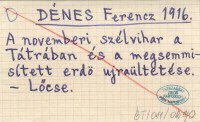 DÉNES Ferencz 1916.
A novemberi szélvihar a
Tátrában és a megsemmi-
sített erdő ujraültetése.
– Lőcse.